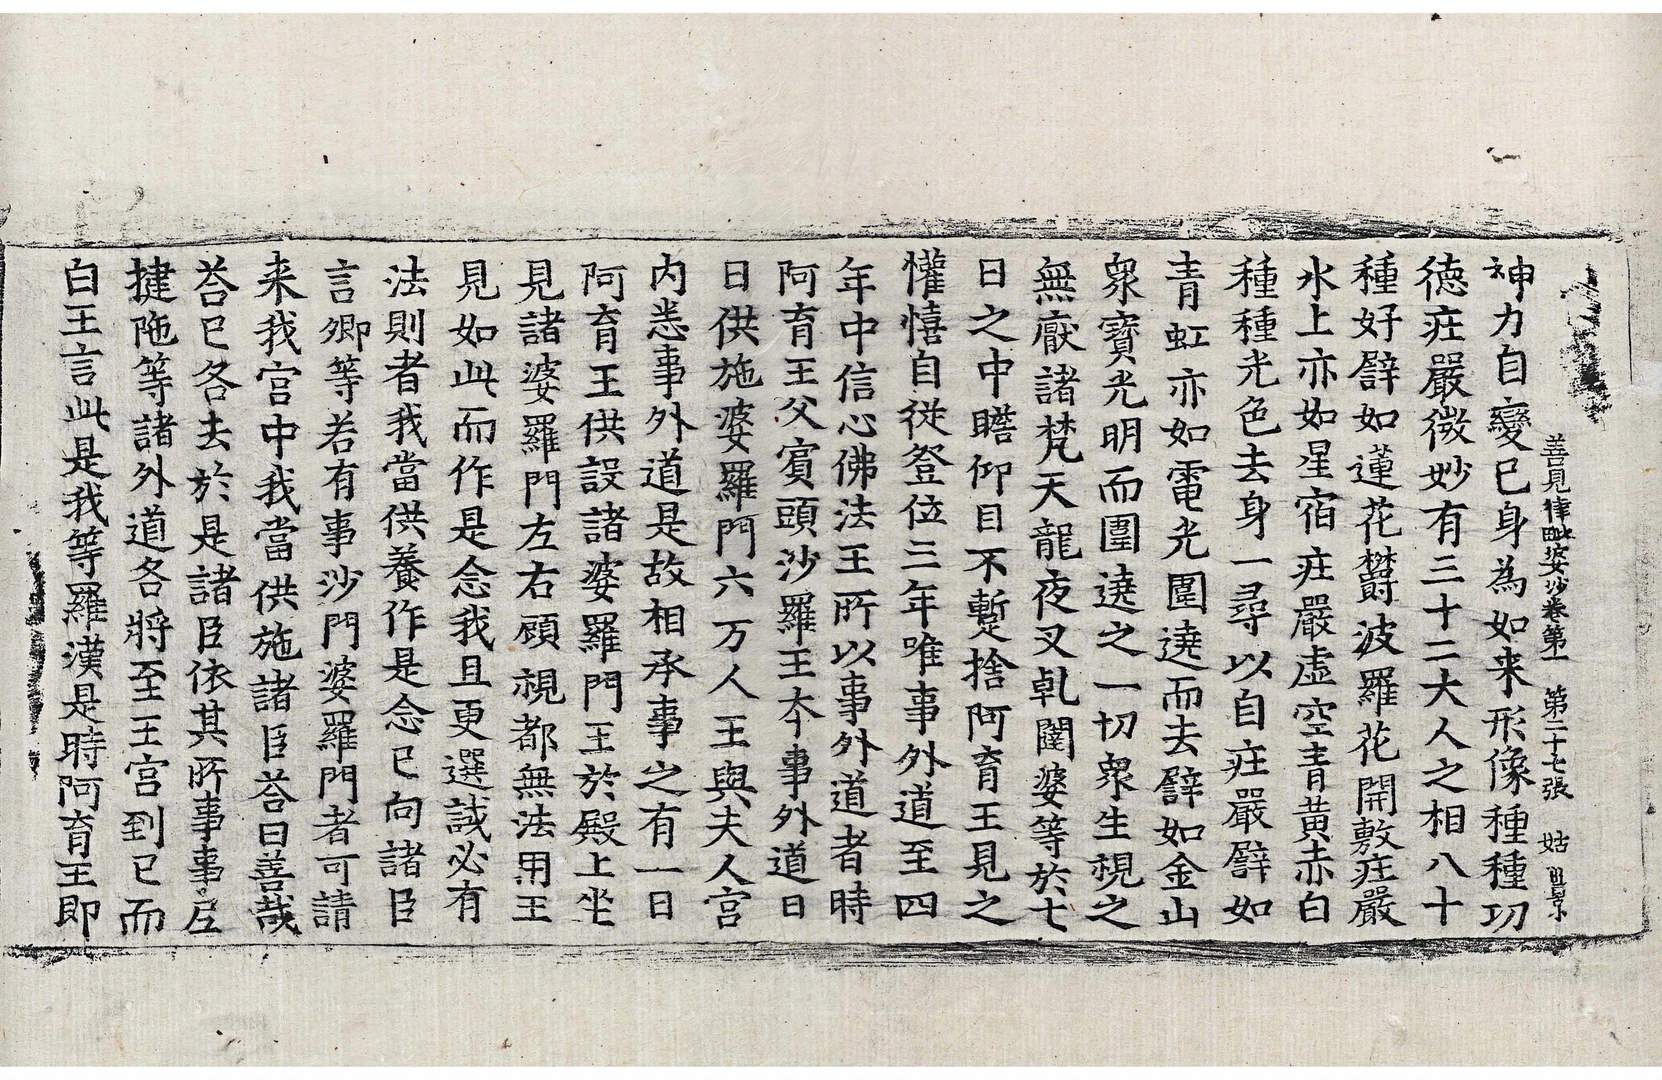 善見律毗婆沙卷第一 第二十七張 姑
神力自變已身為如来形像種種功
德疰嚴微妙有三十二大人之相八十
種好譬如蓮花欝波羅花開敷疰嚴
水上亦如星宿疰嚴虛空青黃赤白
種種光色去身一尋以自疰嚴譬如
青虹亦如電光圍遶而去譬如金山
衆寶光明而圍遶之一切衆生視之
無厭諸梵天龍夜叉乹闥婆等於七
日之中瞻仰目不蹔捨阿育王見之
懽憘自從登位三年唯事外道至四
年中信心佛法王所以事外道者時
阿育王父賓頭沙羅王夲事外道日
日供施婆羅門六万人王與夫人宮
內悉事外道是故相承事之有一日
阿育王供設諸婆羅門王於殿上坐
見諸婆羅門左右顧視都無法用王
見如此而作是念我且更選試必有
法則者我當供養作是念已向諸臣
言卿等若有事沙門婆羅門者可請
来我宮中我當供施諸臣荅曰善哉
荅已各去於是諸臣依其所事事尼
揵陁等諸外道各將至王宮到已而
白王言此是我等羅漢是時阿育王即